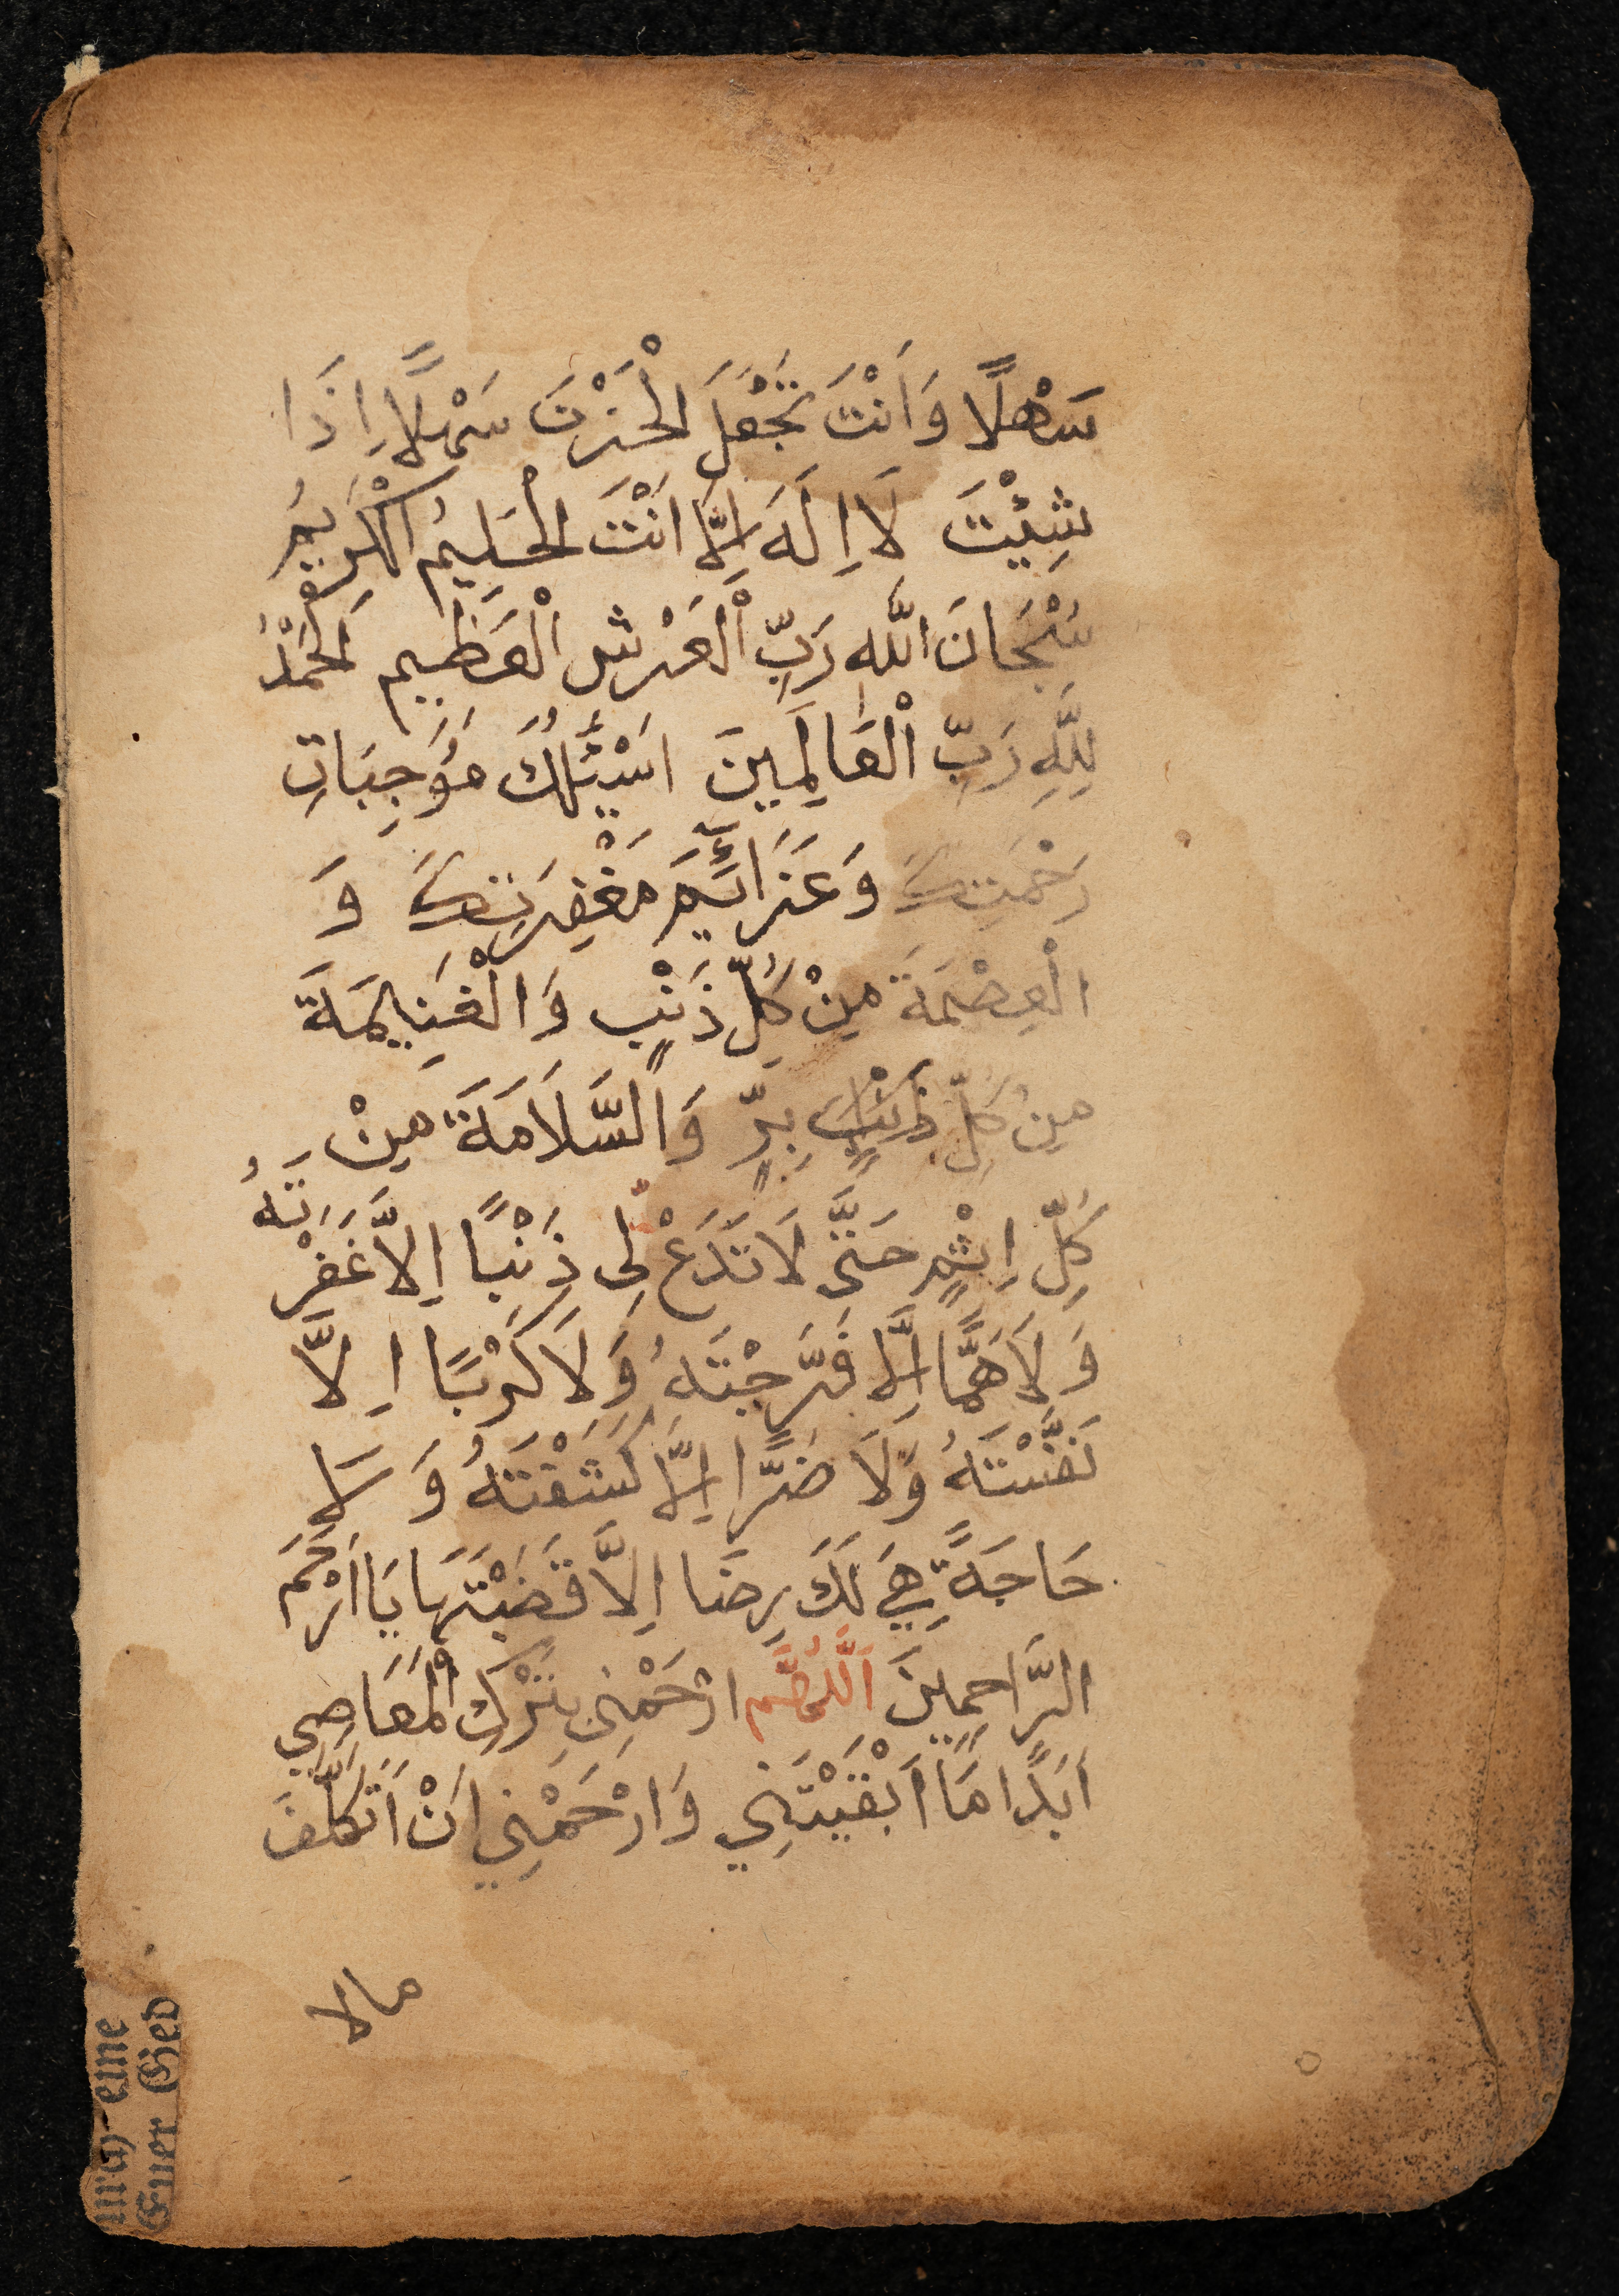 سَهْلًا وَاَنْتَ تَجْعَلَ الْحَزْنَ سَهْلًا اِذَا
شِئْتَ لَا اِلَهَ اِلَّا اَنْتَ الْحَلِيمُ الْكَرِيمُ
سُبْحَانَ اللَّهِ رَبِّ الْعَرْشِ الْعَظِيمِ اَلْحَمْدُ
لِلَّهِ رَبِّ الْعَالَمِينَ اَسْئَلُكَ مُوَجِبَاتِ
رَحْمَتِكَ وَعَزَائِمَ مَغْفِرَتِكَ وَ
الْعِصْمَةَ مِنْ كُلِّ ذَنْبٍ وَالْغَنِيمَةَ
مِنْ كُلِّ ذَنْبٍ بِرٍّ وَالسَّلَامَةَ مِنْ
كُلِّ اِثْمٍ حَتَّى لَا تَدَعْ لِى ذَنْبًا اِلَّا غَفَرْتَهُ
وَلَا هَمًّا اِلَّا فَرَّجْتَهُ وَلَا كَرْبًا اِلَّا
نَفَّسْتَهُ وَلَا ضَرًّا اِلَّا كَشَفْتَهُ وَ لَا
حَاجَةً هِيَ لَكَ رِضَا اِلَّا قَضَيْتَهَا يَا اَرْحَمَ
الرَّاحِمِينَ اَللَّهُمَّ ارْحَمْنِى بِتَرْكِ الْمَعَاصِي
اَبَدًا مَا اَبْقَيْتَنِي وَارْحَمْنِي اَنْ اَتَكَلَّفَ
مالا
uraj-eine
Euer Ged